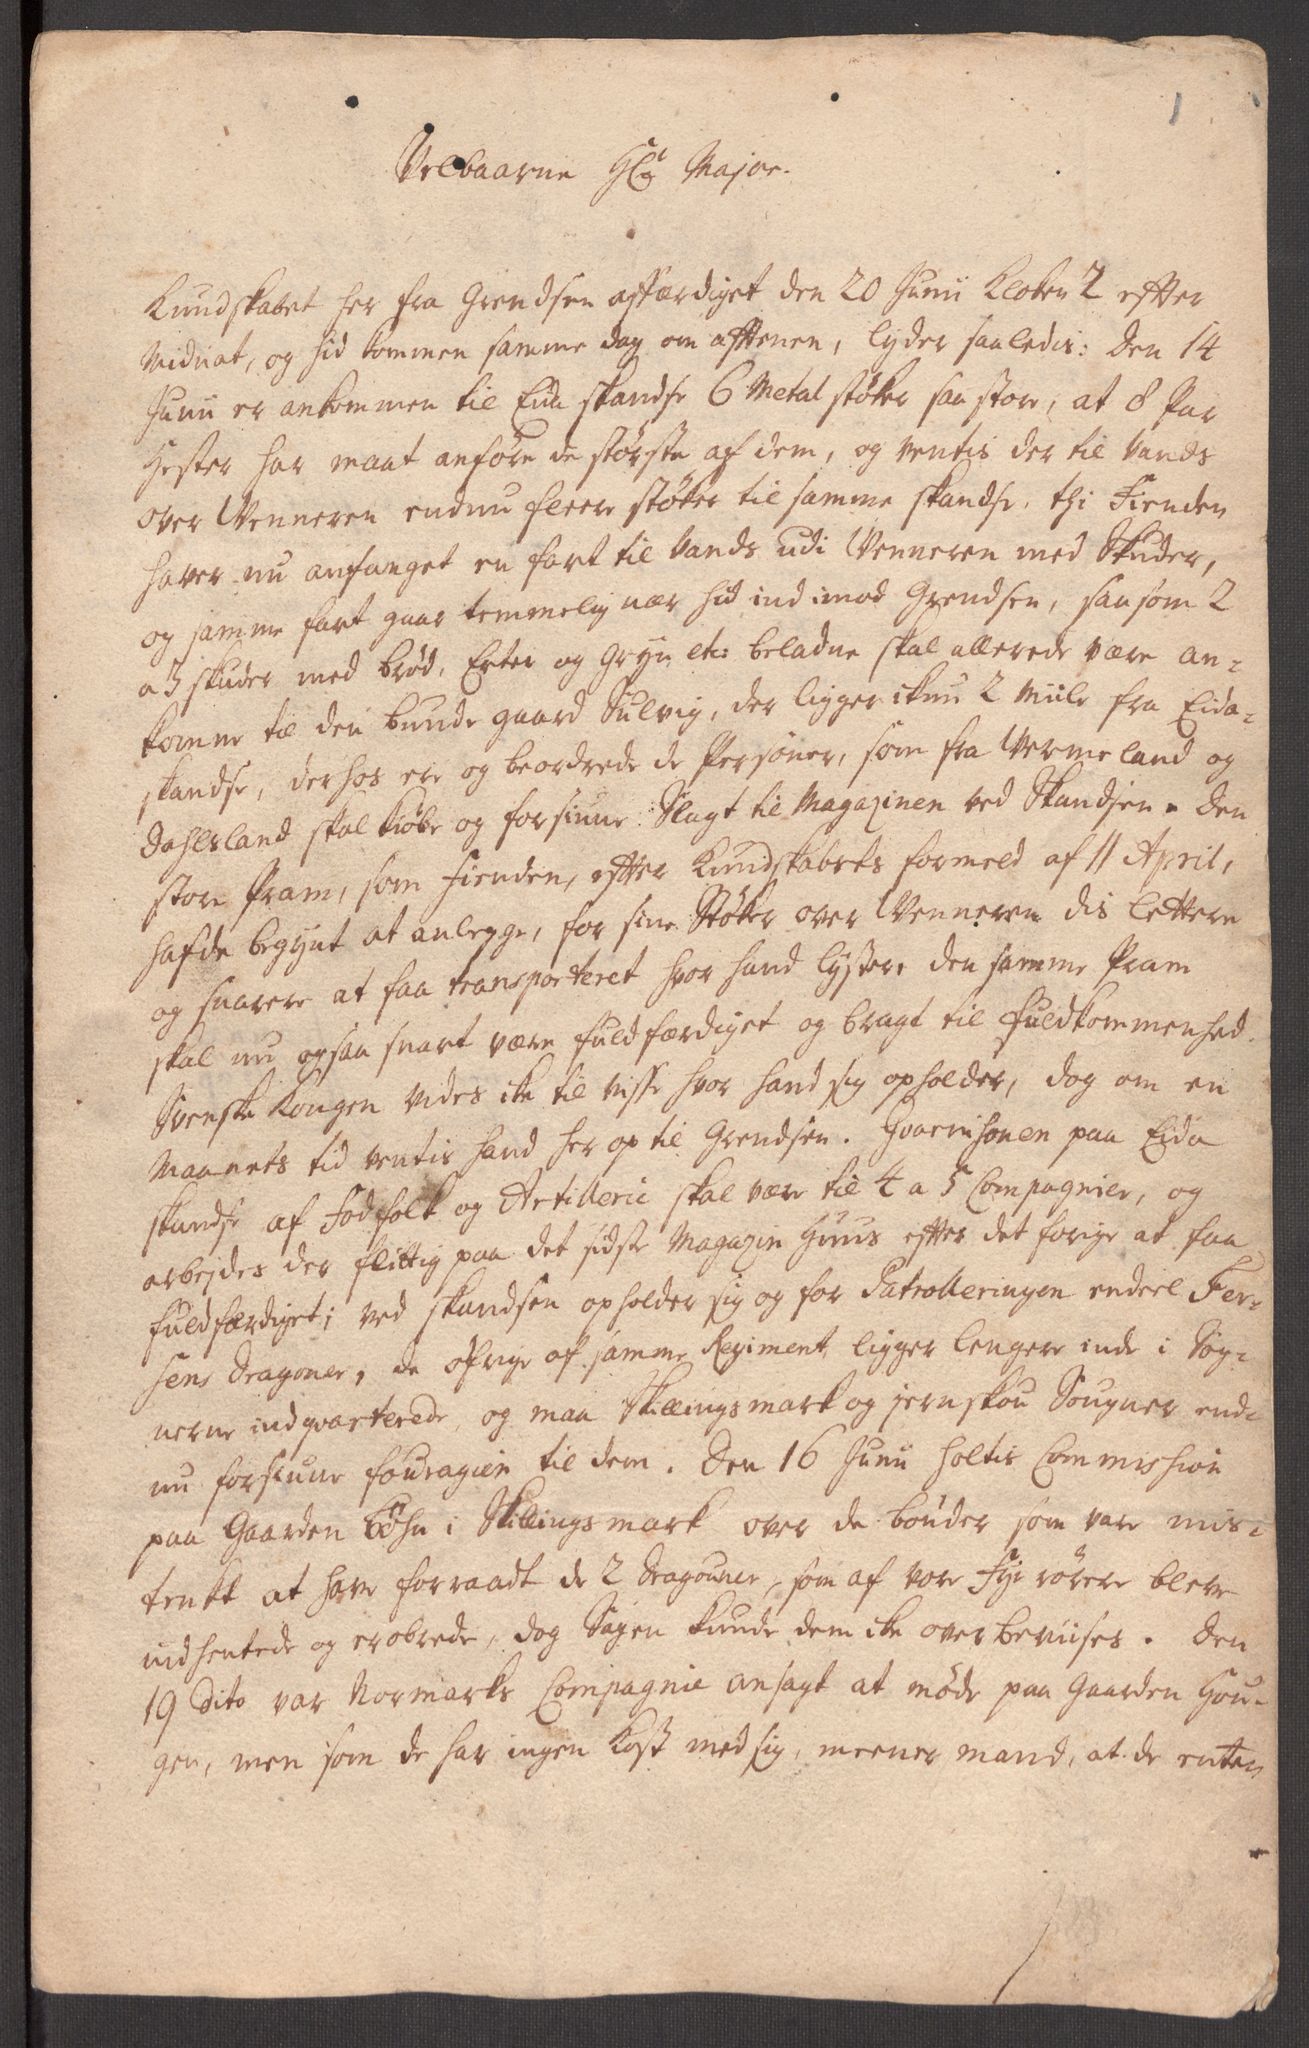 Velbaarne Hr Major.
Kundskabet her fra Grendsen affærdiget den 20 Junii Kloken 2 efter
Midnat, og hid kommen samme dag om afftenen, lyder saaledis: Den 14
Junii er ankommen til Eida skandse 6 Metal støker saa store, at 8 Par
Hester har maat anføre de største af dem, og ventis der til Vands
over Wenneren endnu fleere støker til samme skandse, thi Fienden
haver nu anfanget en fart til Vands udi Wenneren med Skuder,
og samme fart gaar temmelig nær hid ind imod Grendsen, saasom 2
a 3 skuder med brød, Erter og Gryn etc: beladne skal allerede være an-
komne til den bunde gaard Sulvig, der ligger ikun 2 Miile fra Eida-
skandse, derhos ere og beordrede de Persöner, som fra Vermeland og
Dahlsland skal kiöbe og forskune Slagt til Magazinen ved Skandsen. Den
store Pram, som Fienden, efter Kundskabets formeld af 11 April,
hafde begynt at anlegge, for sine Stöker over Wenneren dis lettere
og snarere at faa transporteret hvor hand lyster, den samme Pram
skal nu ogsaa snart være fuldfærdiget og bragt til fuldkommenhed.
Svenske Kongen vides ike til visse hvor hand sig opholder, dog om en
Maanets tid ventis hand her op til Grendsen. Guarnisonen paa Eida
skandse af Fodfolk og Artillerie skal være til 4 a 5 Compagnier, og
arbejdes der flittig paa det sidste Magazin Huus efter det forige at faa
fuldfærdiget; ved skandsen opholder sig og for Patrolleringen endeel Fer-
sens Dragoner, de öfrige af samme Regiment ligger lengere inde i Sog-
nerne indqvarterede, og maa Skillingsmark og jernskou Sougner end-
nu forskune fouragien til dem. Den 16 Junii holtis Commission
paa Gaarden Böhn i Skillingsmark over de bönder som vare mis-
tenkt at have forraadt de 2 Dragouner, som af vore Fyrörere bleve
indhentede og erobrede, dog Sagen kunde dem ike overbeviises. Den
19 dito var Normarks Compagnie ansagt at möde paa Gaarden Hou-
gen, men som de har ingen Kost med sig, meener mand, at de enten